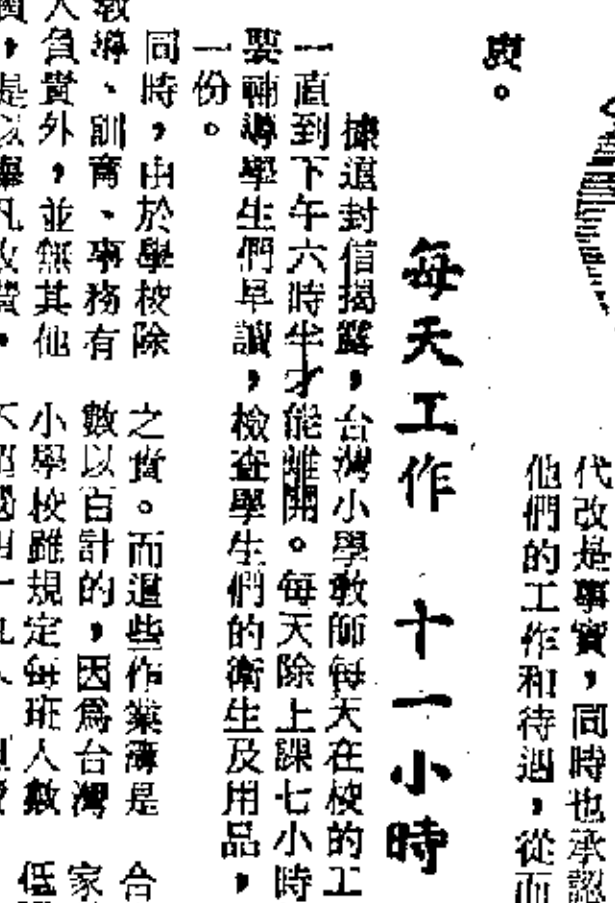 衷。
代改是事實,同時也承認
他們的工作和待遇,從而
每天工作 十一小時
據這封信揭露,台灣小學教師每天在校的工
一直到下午六時半才能離開。每天除上課七小時
要輔導學生們早讀,檢查學生們的衛生及用品,
一份。
同時,由於學校除
教導、訓育、事務有
人負責外,並無其他
是以舉凡收費,
之責。而這些作業簿是
數以百計的,因為台灣
小學校雖規定每班人數
合
家
低